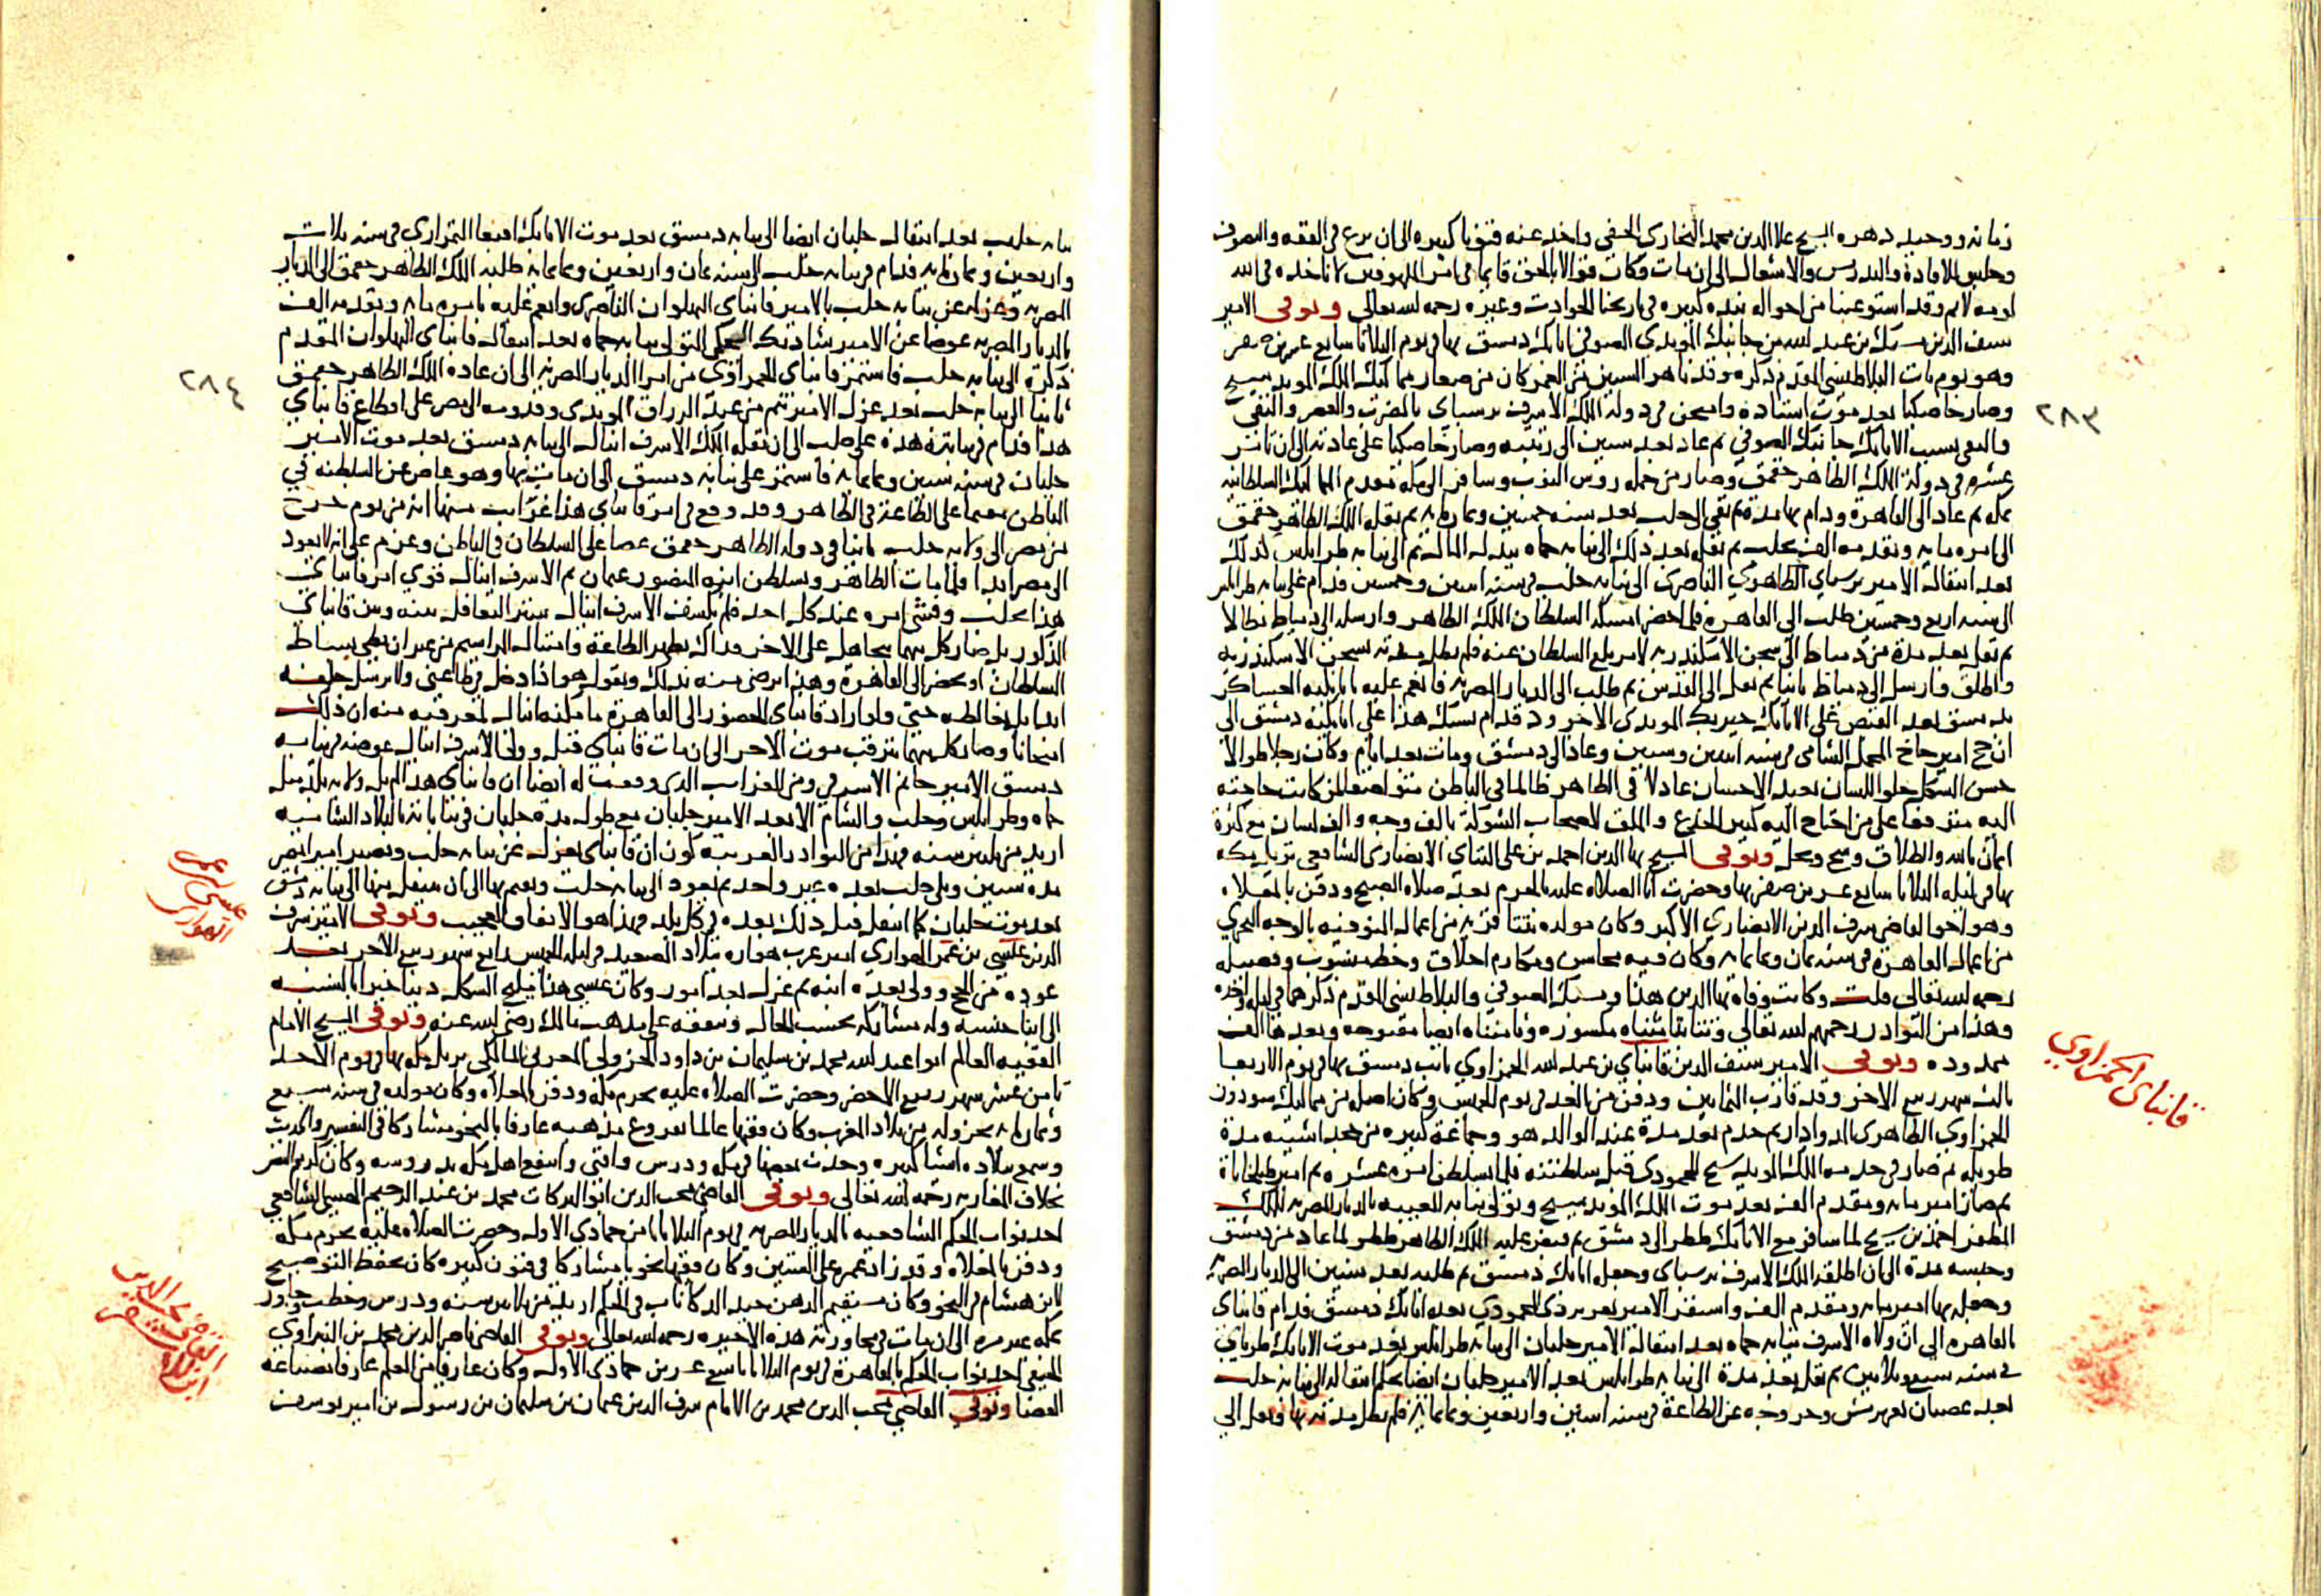 زمانه ووحيد دهره الشيخ علا الدين محمد البخاري الحنفي واخذ عنه فنونا كثيره الى ان برع في الفقه والتصوف
وجلس للافادة والتدريس والاشغال الى ان مات وكان قوالا بالحق قايما في امر الملهوفين لا تاخذه في الله
لومه لايم وقد استوعبنا من احواله نبذه كبيره في تاريخنا الحوادث وغيره رحمه الله تعالى وتوفي الامير
سيف الدين بن عبد الله من جانبك المويدي الصوفي اتابك دمشق بها في يوم الثلاثا سابع عشرين صفر
وهو يوم مات البلاطنسي المقدم ذكره وقد ناهز الستين من العمر كان من صغار مماليك الملك المويد شيخ
وصار خاصكيا بعد موت استاذه وامتحن في دولة الملك الاشرف برسباي بالضرب والعصر والنفي
والنفي بسبب الاتابك جانبك الصوفي ثم عاد بعد سنين الى رتبته وصار خاصكيا على عادته الى ان تامر
عشره في دولة الملك الظاهر جقمق وصار من جمله روس النوب وسافر الى مكة مقدم المماليك السلطانيه
بمكه ثم عاد الى القاهرة ودام بها مدة ثم نفي الى حلب بعد سنه خمسين وثمانمايه ثم نقله الملك الظاهر جقمق
الى امره مايه وتقدمه الف بحلب ثم نقل بعد ذلك الى نيابه حماه ببذل المال ثم الى نيابه طرابلس كذلك
بعد انتقال الامير برسباي الظاهري الناصري الى نيابه حلب في سنه اثنين وخمسين فدام على نيابه طرابلس
الى سنه اربع وخمسين طلب الى القاهرة فلما حضر امسكه السلطان الملك الظاهر وارسله الى دمياط بطالا
ثم نقل بعد مدة من دمياط الى سجن الاسكندريه لامر بلغ السلطان عنه فلم تطل مدته بسجن الاسكندريه
واطلق وارسل الى دمياط ثانيا ثم نقل الى القدس ثم طلب الى الديار المصريه فانعم عليه باتابكيه العساكر
بدمشق بعد القبض على الاتابك خيربك المويدي الاجرود فدام هذا على اتابكية دمشق الى
ان حج امير حاج المحمل الشامي في سنه اثنين وستين وعاد الى دمشق ومات بعد ايام وكان رجلا طوالا
حسن الشكل حلو اللسان بعيد الاحسان عادلا في الظاهر ظالما في الباطن متواضعا لمن كانت حاجته
اليه مترفعا على من احتاج اليه كثير الخدع والملق لاصحاب الشوكة بالف وجه والف لسان مع كثرة
ايمان بالله والطلاق وشح وبخل وتوفي الشيخ بها الدين احمد بن علي التتاي الانصاري الشافعي نزيل مكه
بها في ليلة الثلاثا سابع عشرين صفر بها وحضرت انا الصلاه عليه بالحرم بعد صلاه الصبح ودفن بالمعلاه
وهو اخو القاضي شرف الدين الانصاري الاكبر وكان مولده بتتا قريه من اعمال المنوفيه بالوجه البحري
من اعمال القاهرة في سنه ثمان وثمانمايه وكان فيه محاسن ومكارم اخلاق وخط منسوب وفضيله
رحمه الله تعالى قلت وكانت وفاة بها الدين هذا والصوفي والبلاطنسي المقدم ذكرهما في ليلة واحده
وهذا من النوادر رحمهم الله تعالى وتتا بتا مثناه مكسوره وتا مثناه ايضا مفتوحه وبعدها الف
ممدوده وتوفي الامير سيف الدين قانباي بن عبد الله الحمزاوي نايب دمشق بها في يوم الاربعا
ثالث شهر ربيع الاخر وقد قارب الثمانين ودفن من الغد في يوم الخميس وكان اصله من مماليك سودون
الحمزاوي الظاهري الدوادار ثم خدم بعد مدة عند الوالد هو وجماعة كبيره من خجداشيته مدة
طويله ثم صار في خدمه الملك المويد شيخ المحمودي قبل سلطنته فلما تسلطن امره عشره ثم امير طبلخاناة
ثم صار امير مايه ومقدم الف بعد موت الملك المويد شيخ وتولى نيابه الغيبه بالديار المصريه للملك
المظفر احمد بن شيخ لما سافر مع الاتابك ططر الى دمشق ثم قبض عليه الملك الظاهر ططر لما عاد من دمشق
وحبسه مدة الى ان اطلقه الملك الاشرف برسباي وجعله اتابك دمشق ثم طلبه بعد سنين الى الديار المصريه
وجعله بها امير مايه ومقدم الف واستقر الامير تغري بردي المحمودي بعده اتابك دمشق فدام قانباي
بالقاهره الى ان ولاه الاشرف نيابه حماه بعد انتقال الامير جلبان الى نيابه طرابلس بعد موت الاتابك طرباي
في سنه سبع وثلاثين ثم نقل بعد مدة الى نيابه طرابلس بعد الامير جلبان ايضا بحكم انتقاله الى نيابه حلب
بعد عصيان تغري برمش وخروجه عن الطاعة في سنه اثنين واربعين وثمانمايه فلم تطل مدته بها ونقل الى
٢٨٣
قانباى الحمزاوي
نيابه حلب بعد انتقال جلبان ايضا الى نيابه دمشق بعد موت الاتابك اقبغا التمرازي في سنه ثلاث
واربعين وثمانمايه فدام في نيابه حلب الى سنه ثمان واربعين وثمانمايه طلبه الملك الظاهر جقمق الى الديار
المصريه وعزله عن نيابه حلب بالامير قانباي البهلوان الناصري وانعم عليه بامره مايه وتقدمه الف
بالديار المصريه عوضا عن الامير شادبك الجكمي المتولي نيابه حماه بعد انتقال قانباي البهلوان المقدم
ذكره الى نيابه حلب فاستمر قانباي الحمزاوي من امرا الديار المصريه الى ان عاده الملك الظاهر جقمق
ثانيا الى نيابه حلب بعد عزل الامير تنم من عبد الرزاق المويدي وقدومه الى مصر على اقطاع قانباي
هذا فدام في نيابته هذه على حلب الى ان نقله الملك الاشرف اينال الى نيابه دمشق بعد موت الامير
جلبان في سنه ستين وثمانمايه فاستمر على نيابه دمشق الى ان مات بها وهو عاص عن السلطنه في
الباطن مقيما على الطاعة في الظاهر وقد وقع في امر قانباي هذا غرايب منها انه من يوم خرج
من مصر الى ولايه حلب ثانيا في دوله الظاهر جقمق عصا على السلطان في الباطن وعزم على انه لا يعود
الى مصر ابدا فلما مات الظاهر وتسلطن ابنه المنصور عثمان ثم الاشرف اينال قوي امر قانباي
هذا بحلب وفشى امره عند كل احد فلم يكشف الاشرف اينال ستر التغافل بينه وبين قانباي
المذكور بل صار كل منهما يتجاهل على الاخر فذاك يظهر الطاعة وامتثال المراسيم من غير ان يطي بساط
السلطان او يحضر الى القاهرة وهذا يرضى منه بذلك ويقول هو اذا دخل في طاعتي ولا يرسل خلفه
ابدا بل يغالطه حتى ولو اراد قانباي الحضور الى القاهرة ما مكنه اينال لمعرفته منه ان ذلك
امتحانا وصار كل منهما يترقب موت الاخر الى ان مات قانباي قبل وولى الاشرف اينال عوضه في نيابه
دمشق الامير جانم الاشرفي ومن الغرايب الذي وقعت له ايضا ان قانباي هذا لم يل ولايه بلد مثل
حماه وطرابلس وحلب والشام الا بعد الامير جلبان مع طول مدة جلبان في نياباته بالبلاد الشاميه
ازيد من ثلثين سنه فهذا من النوادر الغريبه كون ان قانباي يعزل عن نيابه حلب ويصير اميرا بمصر
مدة سنين ويلي حلب بعده غير واحد ثم يعود الى نيابه حلب ويقيم بها الى ان ينقل منها الى نيابه دمشق
بعد موت جلبان كما انتقل قبل ذلك بعده في كل بلد فهذا هو الاتفاق العجيب وتوفي الامير شرف
الدين عيسى بن عمر الهواري امير عرب هواره ببلاد الصعيد في ليله الخميس رابع شهر ربيع الاخر بعد
عوده من الحج وولى بعده ابنه ثم عزل بعد امور وكان عيسى هذا مليح الشكل دينا خيرا بالنسبه
الى ابنا جنسه وله مشاركه بحسب الحال وتفقه على مذهب مالك رضي الله عنه وتوفي الشيخ الامام
الفقيه العالم ابو عبد الله محمد بن سليمان بن داود الجزولي المغربي المالكي نزيل مكه بها في يوم الاحد
ثامن عشر شهر ربيع الاخر وحضرت الصلاه عليه بحرم مكه ودفن بالمعلاه وكان مولده في سنه سبع
وثمانمايه بجزوله من بلاد المغرب وكان فقيها عالما بفروع مذهبه عارفا بالنحو مشاركا في التفسير والحديث
وسمع ببلاده اشيا كبيره وحدث ببعضها في مكه ودرس وافتى وانتفع اهل مكه بدروسه وكان كريم النفس
بخلاف المغاربه رحمه الله تعالى وتوفي القاضي محب الدين ابو البركات محمد بن عبد الرحيم الشافعي
احد نواب الحكم الشافعيه بالديار المصريه في يوم الثلاثا ثامن جمادى الاولى وحضرت الصلاه عليه بحرم مكه
ودفن بالمعلاه وقد زاد عمره على الستين وكان فقيها نحويا مشاركا في فنون كبيره كان يحفظ التوضيح
لابن هشام في النحو وكان مستقيم الذهن جيد الذكا ناب في الحكم ازيد من ثلاثين سنه ودرس وخطب وجاور
بمكه غير مره الى ان مات في مجاورته هذه الاخيره رحمه الله تعالى وتوفي القاضي ناصر الدين محمد بن النبراوي
الحنفي احد نواب الحكم بالقاهرة في يوم الثلاثا تاسع عشرين جمادى الاولى وكان عاريا من العلم عارفا بصناعة
القضا وتوفي القاضي محب الدين محمد بن الامام شرف الدين عثمان بن سليمان بن رسول بن امير يوسف
٢٨٤
عيسى بن عمر
الهواري
القاضي محب الدين
ابن الاشقر